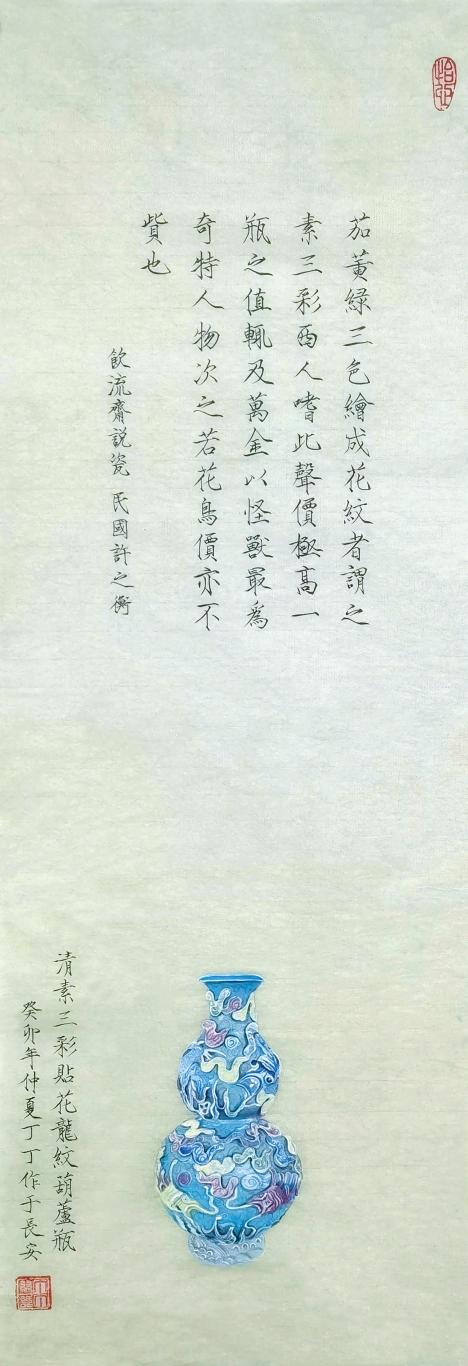 茄黃綠三色繪成花紋者謂之
素三彩西人嗜此聲價極高一
瓶之值輒及萬金以怪獸最為
奇特人物次之若花鳥價亦不
貲也
飲流齋說瓷 民國許之衡
清素三彩貼花龍紋葫蘆瓶
癸卯年仲夏丁丁作于長安